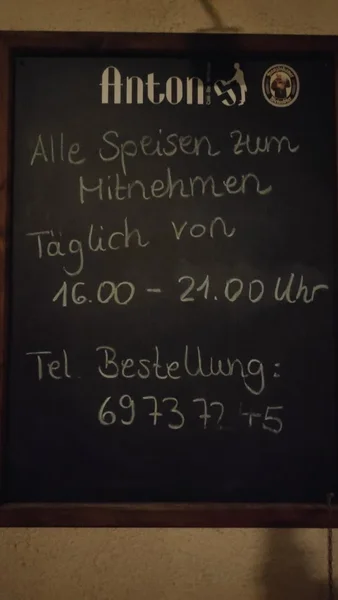 Anton
Alle Speisen zum
Mitnehmen
Täglich von
16.00 - 21.00 Uhr
Tel. Bestellung:
69737245